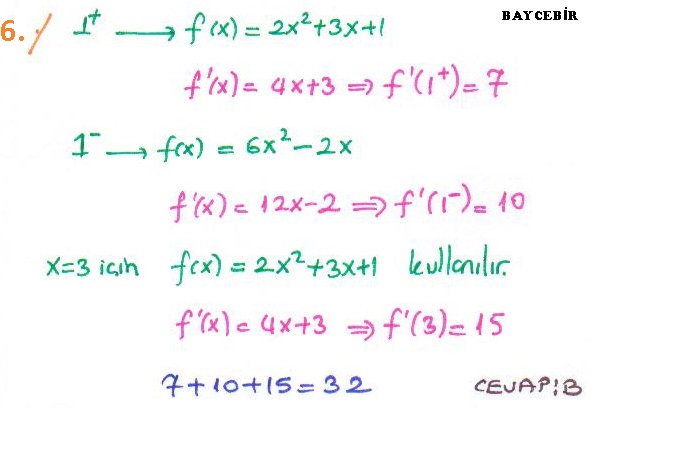 BAYCEBİR
6.) 1⁺ → f(x) = 2x²+3x+1
f'(x) = 4x+3 ⇒ f'(1⁺) = 7
1⁻ → f(x) = 6x²-2x
f'(x) = 12x-2 ⇒ f'(1⁻) = 10
x=3 için f(x) = 2x²+3x+1 kullanılır.
f'(x) = 4x+3 ⇒ f'(3) = 15
7+10+15=32 CEVAP:B